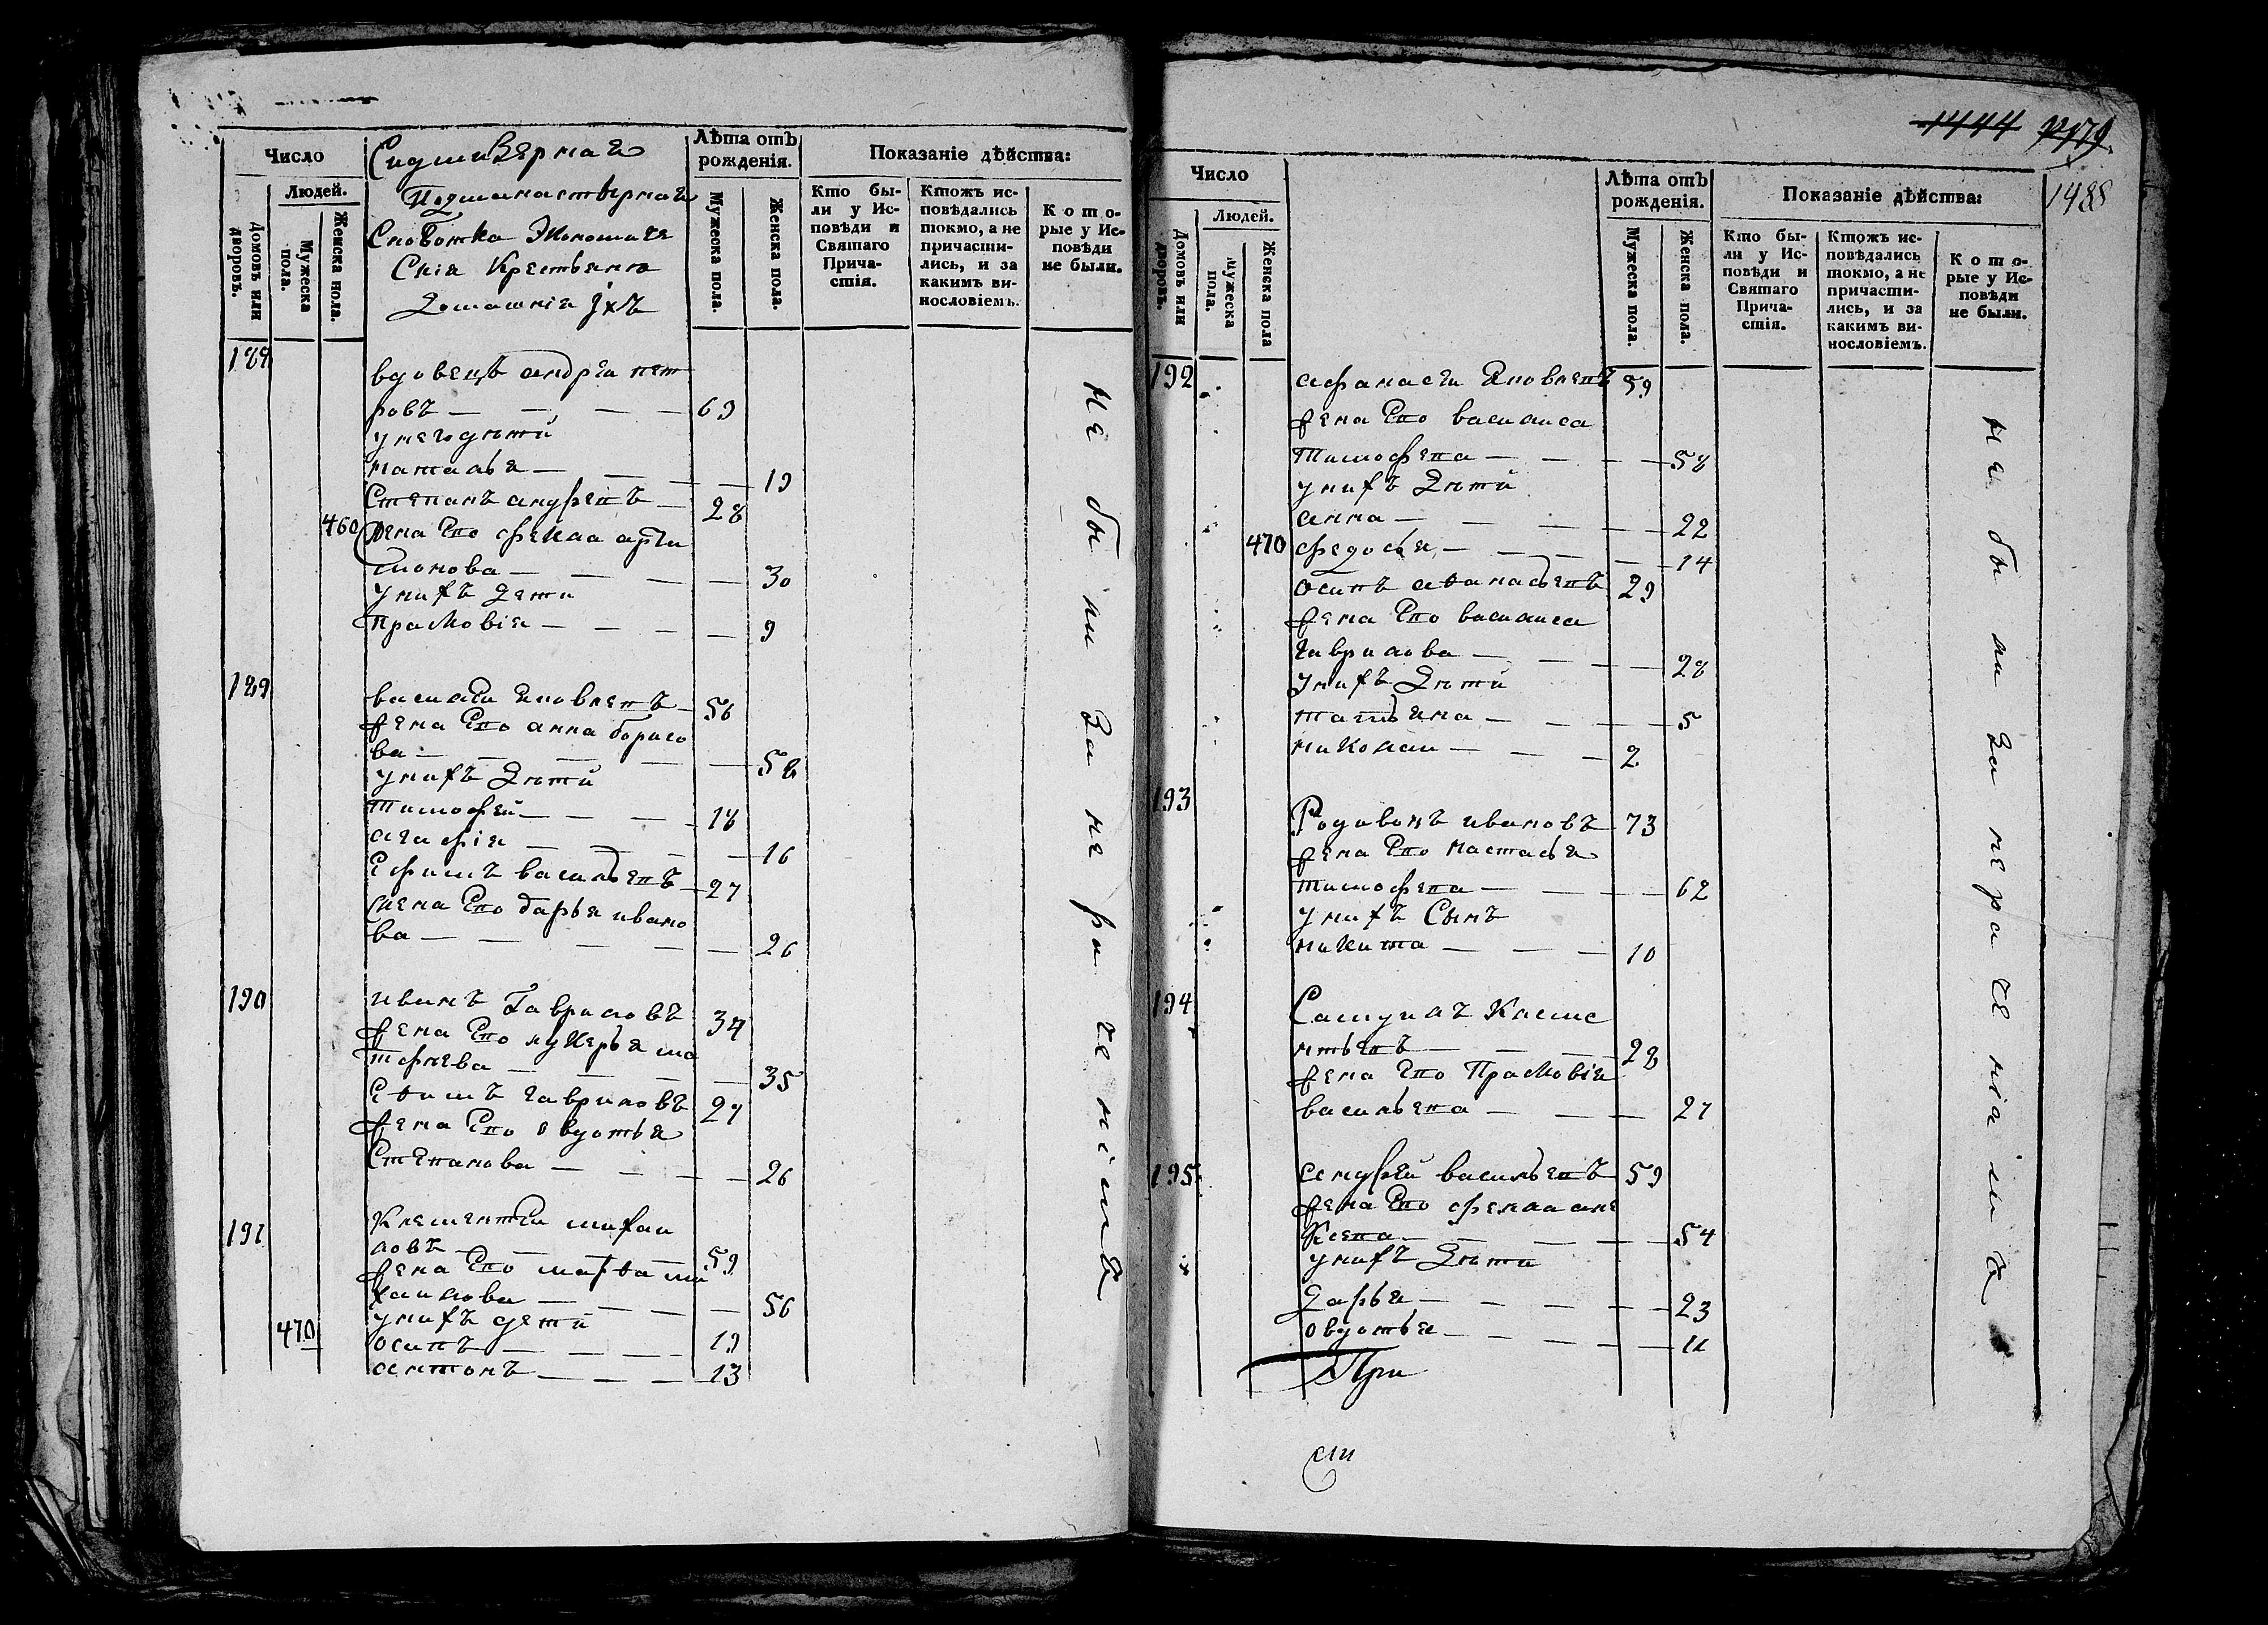 Число
Людей.
Домовъ или дворовъ.
Мужеска пола.
Женска пола.
Подмонастырная
Слободка Экономиче
Скія Крестьяня
Домашнія Ихъ
Лѣта отъ рожденія.
Мужеска пола.
Женска пола.
Показаніе дѣйства:
Кто бы-
ли у Ис-
повѣди и
Святаго
Прича-
стія.
Ктожъ ис-
повѣдались
токмо, а не
причасти-
лись, и за
какимъ ви-
нословіемъ.
Кото-
рые у Ис-
повѣди
не были.
188
вдовецъ андреи пет
ровъ — 69
унего дѣти
наталья — 19
Степанъ андреевъ — 28
460 жена Его фекла арти
монова — 30
унихъ дети
Прасковія — 9
189
василеи яковлевъ — 56
жена Его анна борисо
ва — 58
унихъ Дѣти
тимофей — 18
агафія — 16
Ефимъ васильевъ — 27
жена Его дарья ивано
ва — 26
190
иванъ Гавриловъ 34
жена Его лукерья ма
тфеева — 35
Еѳимъ гавриловъ 27
жена Его овдотья
Степанова — 26
191
Клементеи михаи
ловъ — 59
жена Его марѳа ми
хаилова — 56
унихъ дети
470 осипъ — 19
антонъ — 13
не были за нераченіемъ
1444
1488
Число
Людей.
Домовъ или дворовъ.
Мужеска пола.
Женска пола
Лѣта отъ рожденія.
Мужеска пола.
Женска пола.
Показаніе дѣйства:
Кто бы-
ли у Ис-
повѣди и
Святаго
Прича-
стія.
Ктожъ ис-
повѣдались
токмо, а не
причасти-
лись, и за
какимъ ви-
нословіемъ.
Кото-
рые у Ис-
повѣди
не были.
192
афанасеи Яковлевъ 59
жена Его василиса
Тимофева — 58
унихъ Дѣти
анна — 22
470 федосья — 14
осипъ аѳанасьевъ 29
жена Его василиса
гаврилова — 28
унихъ Дѣти
татьяна — 5
николаи — 2
193
Родивонъ ивановъ — 73
жена Его настасья
тимофева — 62
унихъ Сынъ
никита — 10
194
Самуилъ Клеме
нтьевъ — 28
жена Его Прасковія
васильева — 27
195
андрей васильевъ 59
жена Его фекла але
ксева — 54
унихъ Дѣти
Дарья — 23
овдотья — 11
При
не были за нераченіемъ